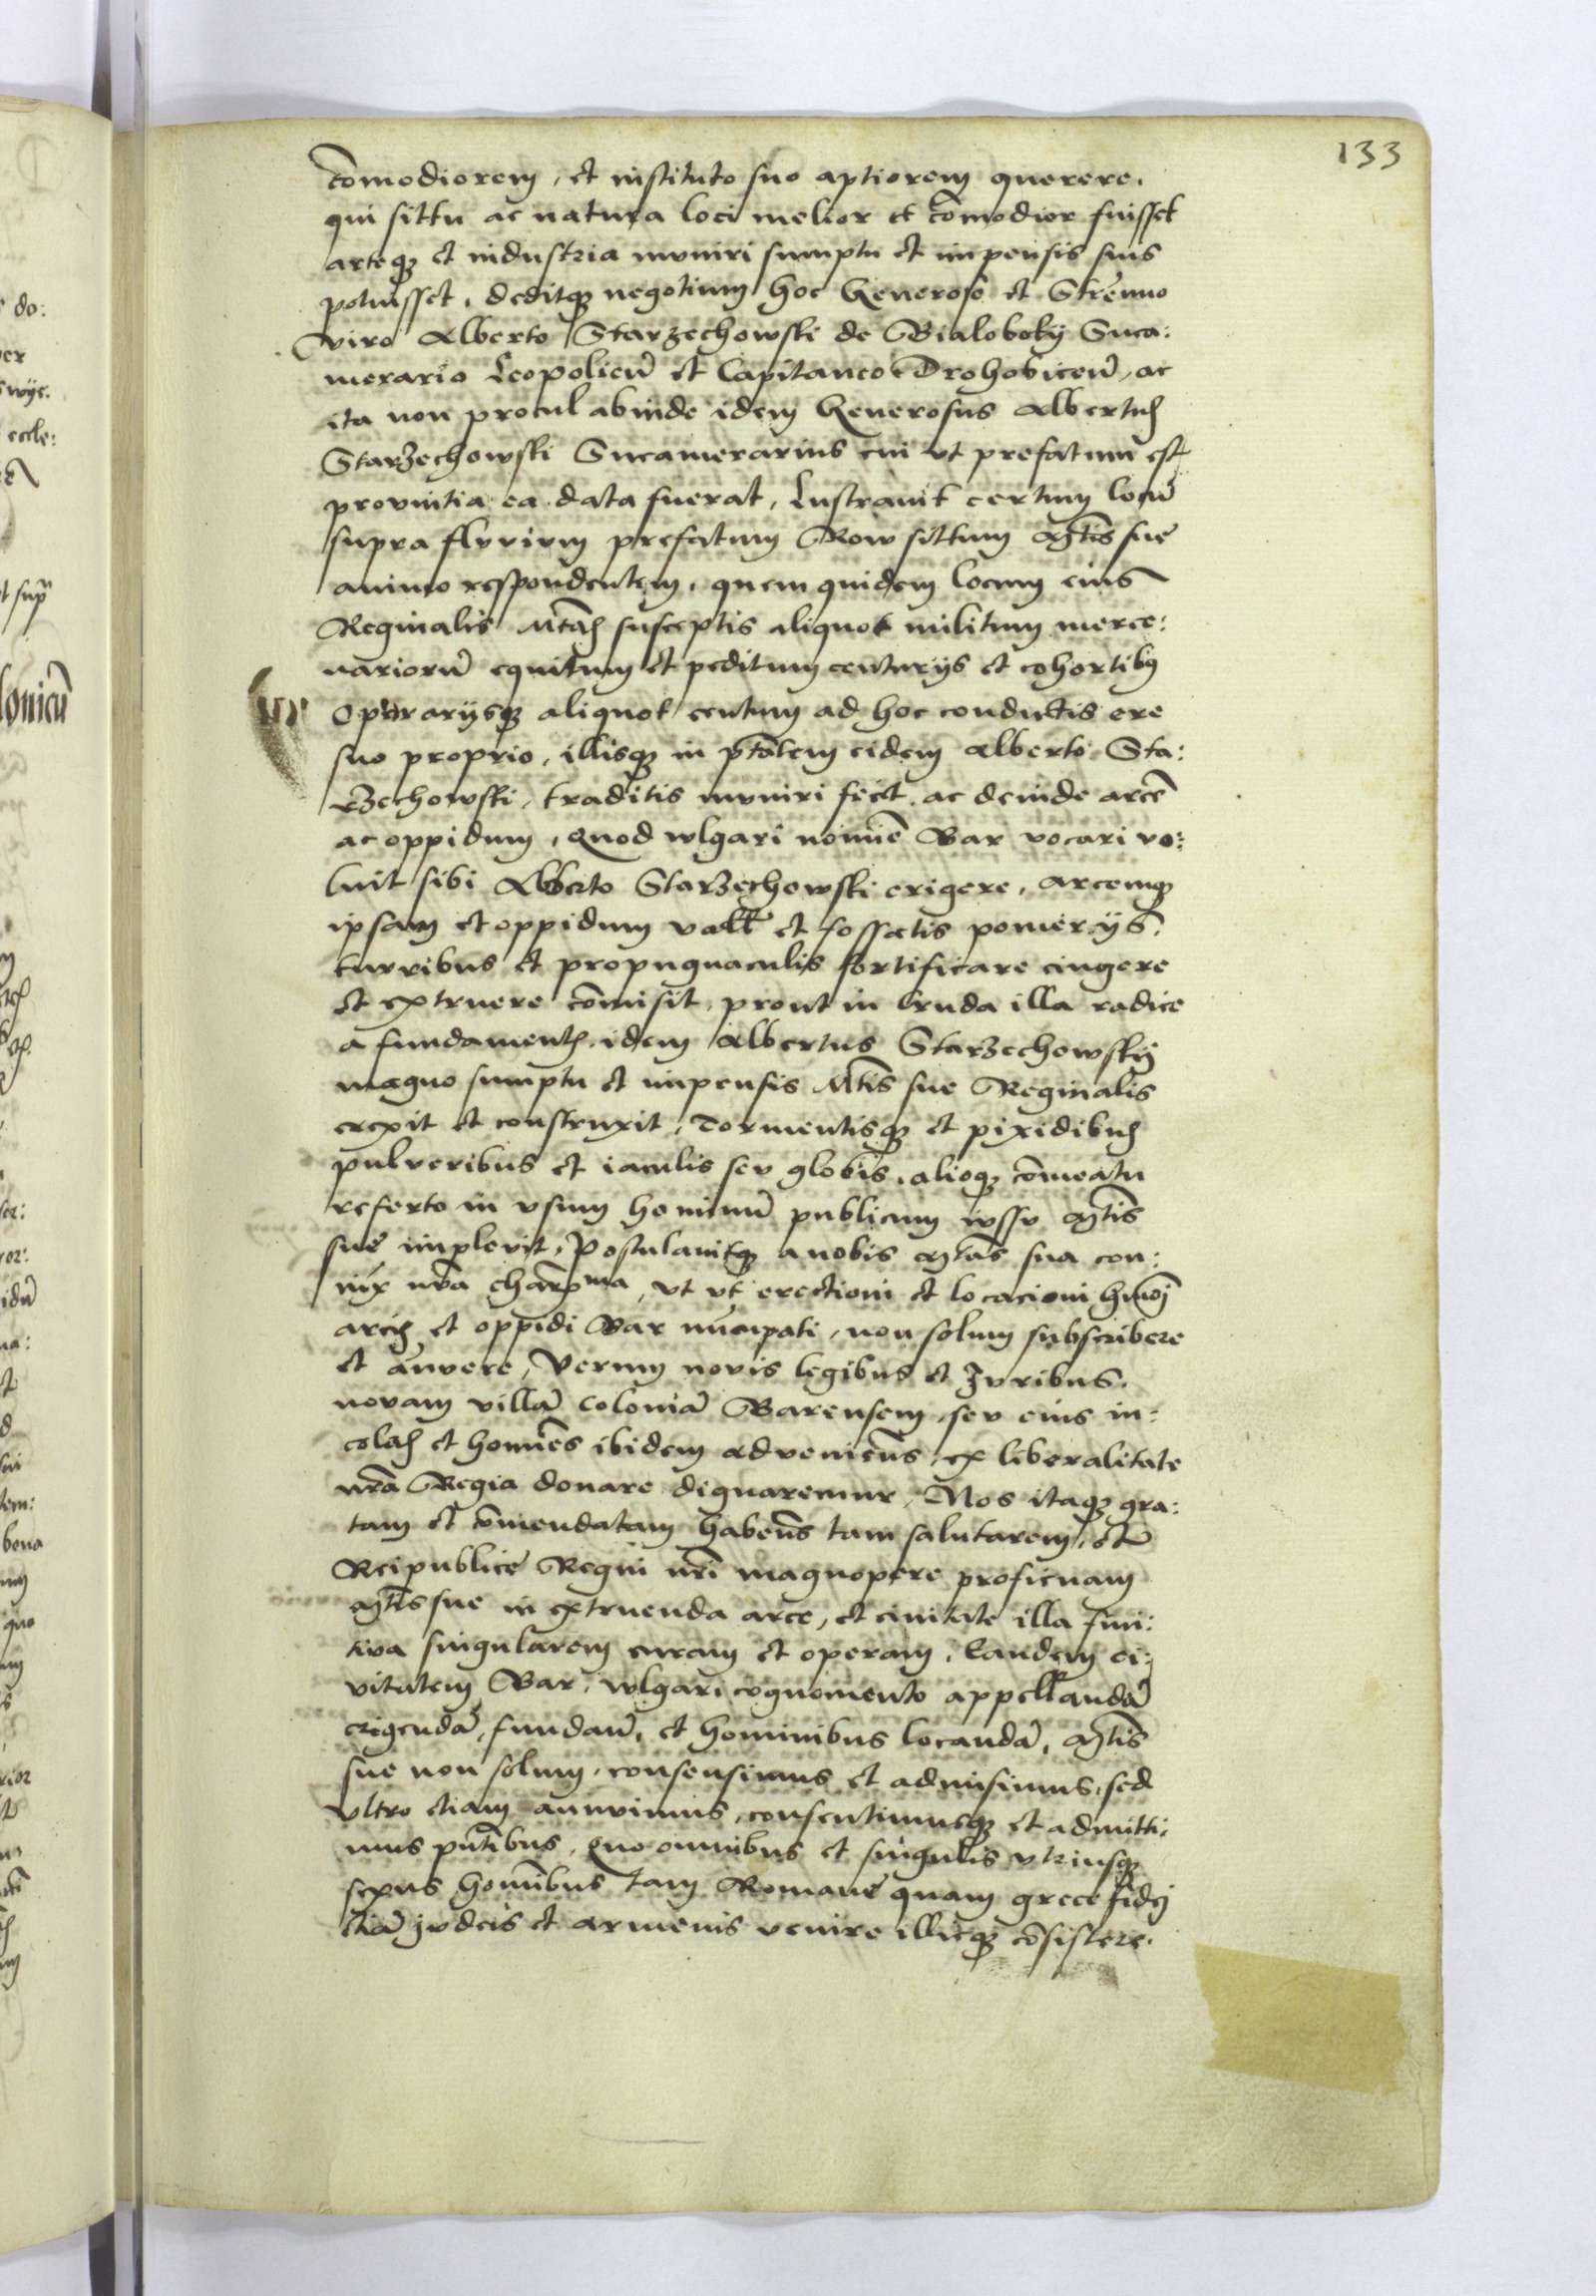 133
com̄odiorem, et instituto suo aptiorem querere.
qui sittu ac natura loci melior et com̄odior fuisset
arteq3 et industria muniri sumptu et impensis suis
potuisset, deditq3 negotium hoc Generoso et Strenuo
viro Alberto Starzechowski de Bialoboky Succa:
merario Leopolien̄ et Capitaneo Drohobicen̄, ac
ita non procul abinde idem Generosus Albertus
Starzechowski Sucamerarius cui vt prefatum est
provintia ea data fuerat, Lustravit certum locū
supra fluvium prefatum Row sittum M̄tis sue
animo respondentem, quem quidem locum eius
Reginalis M̄tas susceptis aliquot militum merce:
nariorū equitum et peditum centurijs et cohortibus
Operarijsq3 aliquot centum ad hoc conductis ere
suo proprio, illisq3 in p̄tātem eidem Alberto Sta:
rzechowski, traditis muniri fecit, ac deinde arcē
ac oppidum, quod wlgari nomīe Bar vocari vo:
luit sibi Alberto Starzechowski erigere, arcemq3
ipsam et oppidum vall et fossatis pomerijs,
turribus et propugnaculis fortificare cingere
et extruere com̄isit, prout in cruda illa radice
a fundamentis idem Albertus Starzechowskij
magno sumptu et impensis M̄tis sue Reginalis
erexit et construxit, Tormentisq3 et pixidibus
pulveribus et iaculis seu globis, alioq3 com̄eatu
referto in vsum hominū publicum iussu M̄tis
sue implevit, Postulavitq3 a nobis M̄tas sua con:
iux nr̄a char̄ma, vt vt erectioni et locacioni hmōi
arcis et oppidi Bar nūcupati, non solum subscribere
et an̄uere, Verum novis legibus et Juribus,
novam villā coloniā Barensem, seu eius in:
colas et homīes ibidem advenien̄s, ex liberalitate
nr̄a Regia donare dignaremur, Nos itaq3 gra:
tam et com̄endatam haben̄s tam salutarem, et
Reipublice Regni nr̄i magnopere proficuam
M̄tis sue in extruenda arce, et civitate illa fini:
tiva singularem curam et operam, Eandem ci:
vitatem Bar, wlgari cognomento appellandā
erigendā, fundan̄, et hominibus locandā, M̄tis
sue non solum, consensimus et admisimus, sed
vltro etiam annuimus, consentimusq3 et admitti:
mus pn̄tibus, quo omnibus et singulis vtriusq3
sexus homībus tam Romane quam grece fidej
etiā judeis et armenis venire illicq3 cōsistere.